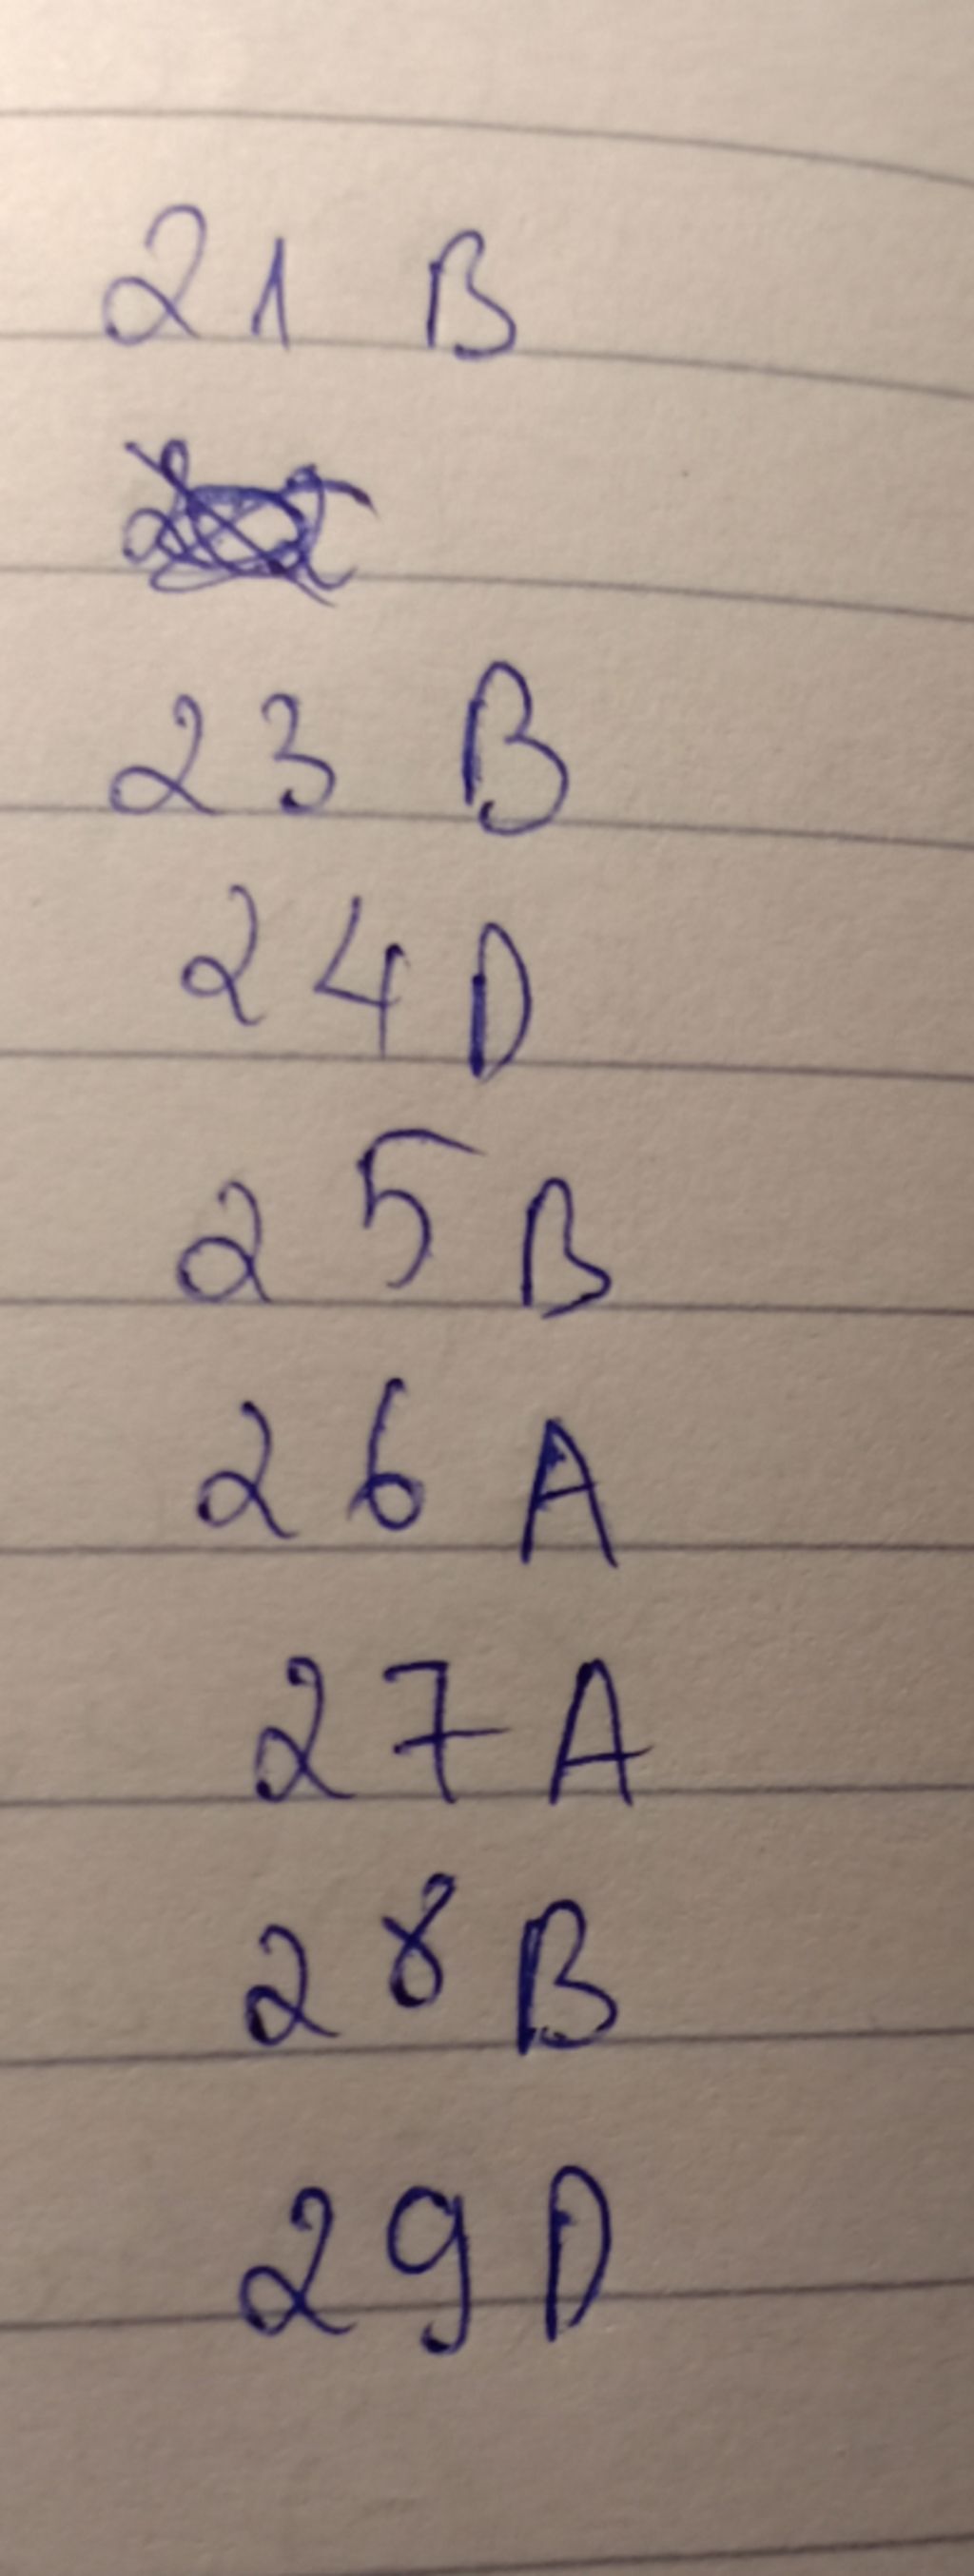 21 B
23 B
24 D
25 B
26 A
27 A
28 B
29 D